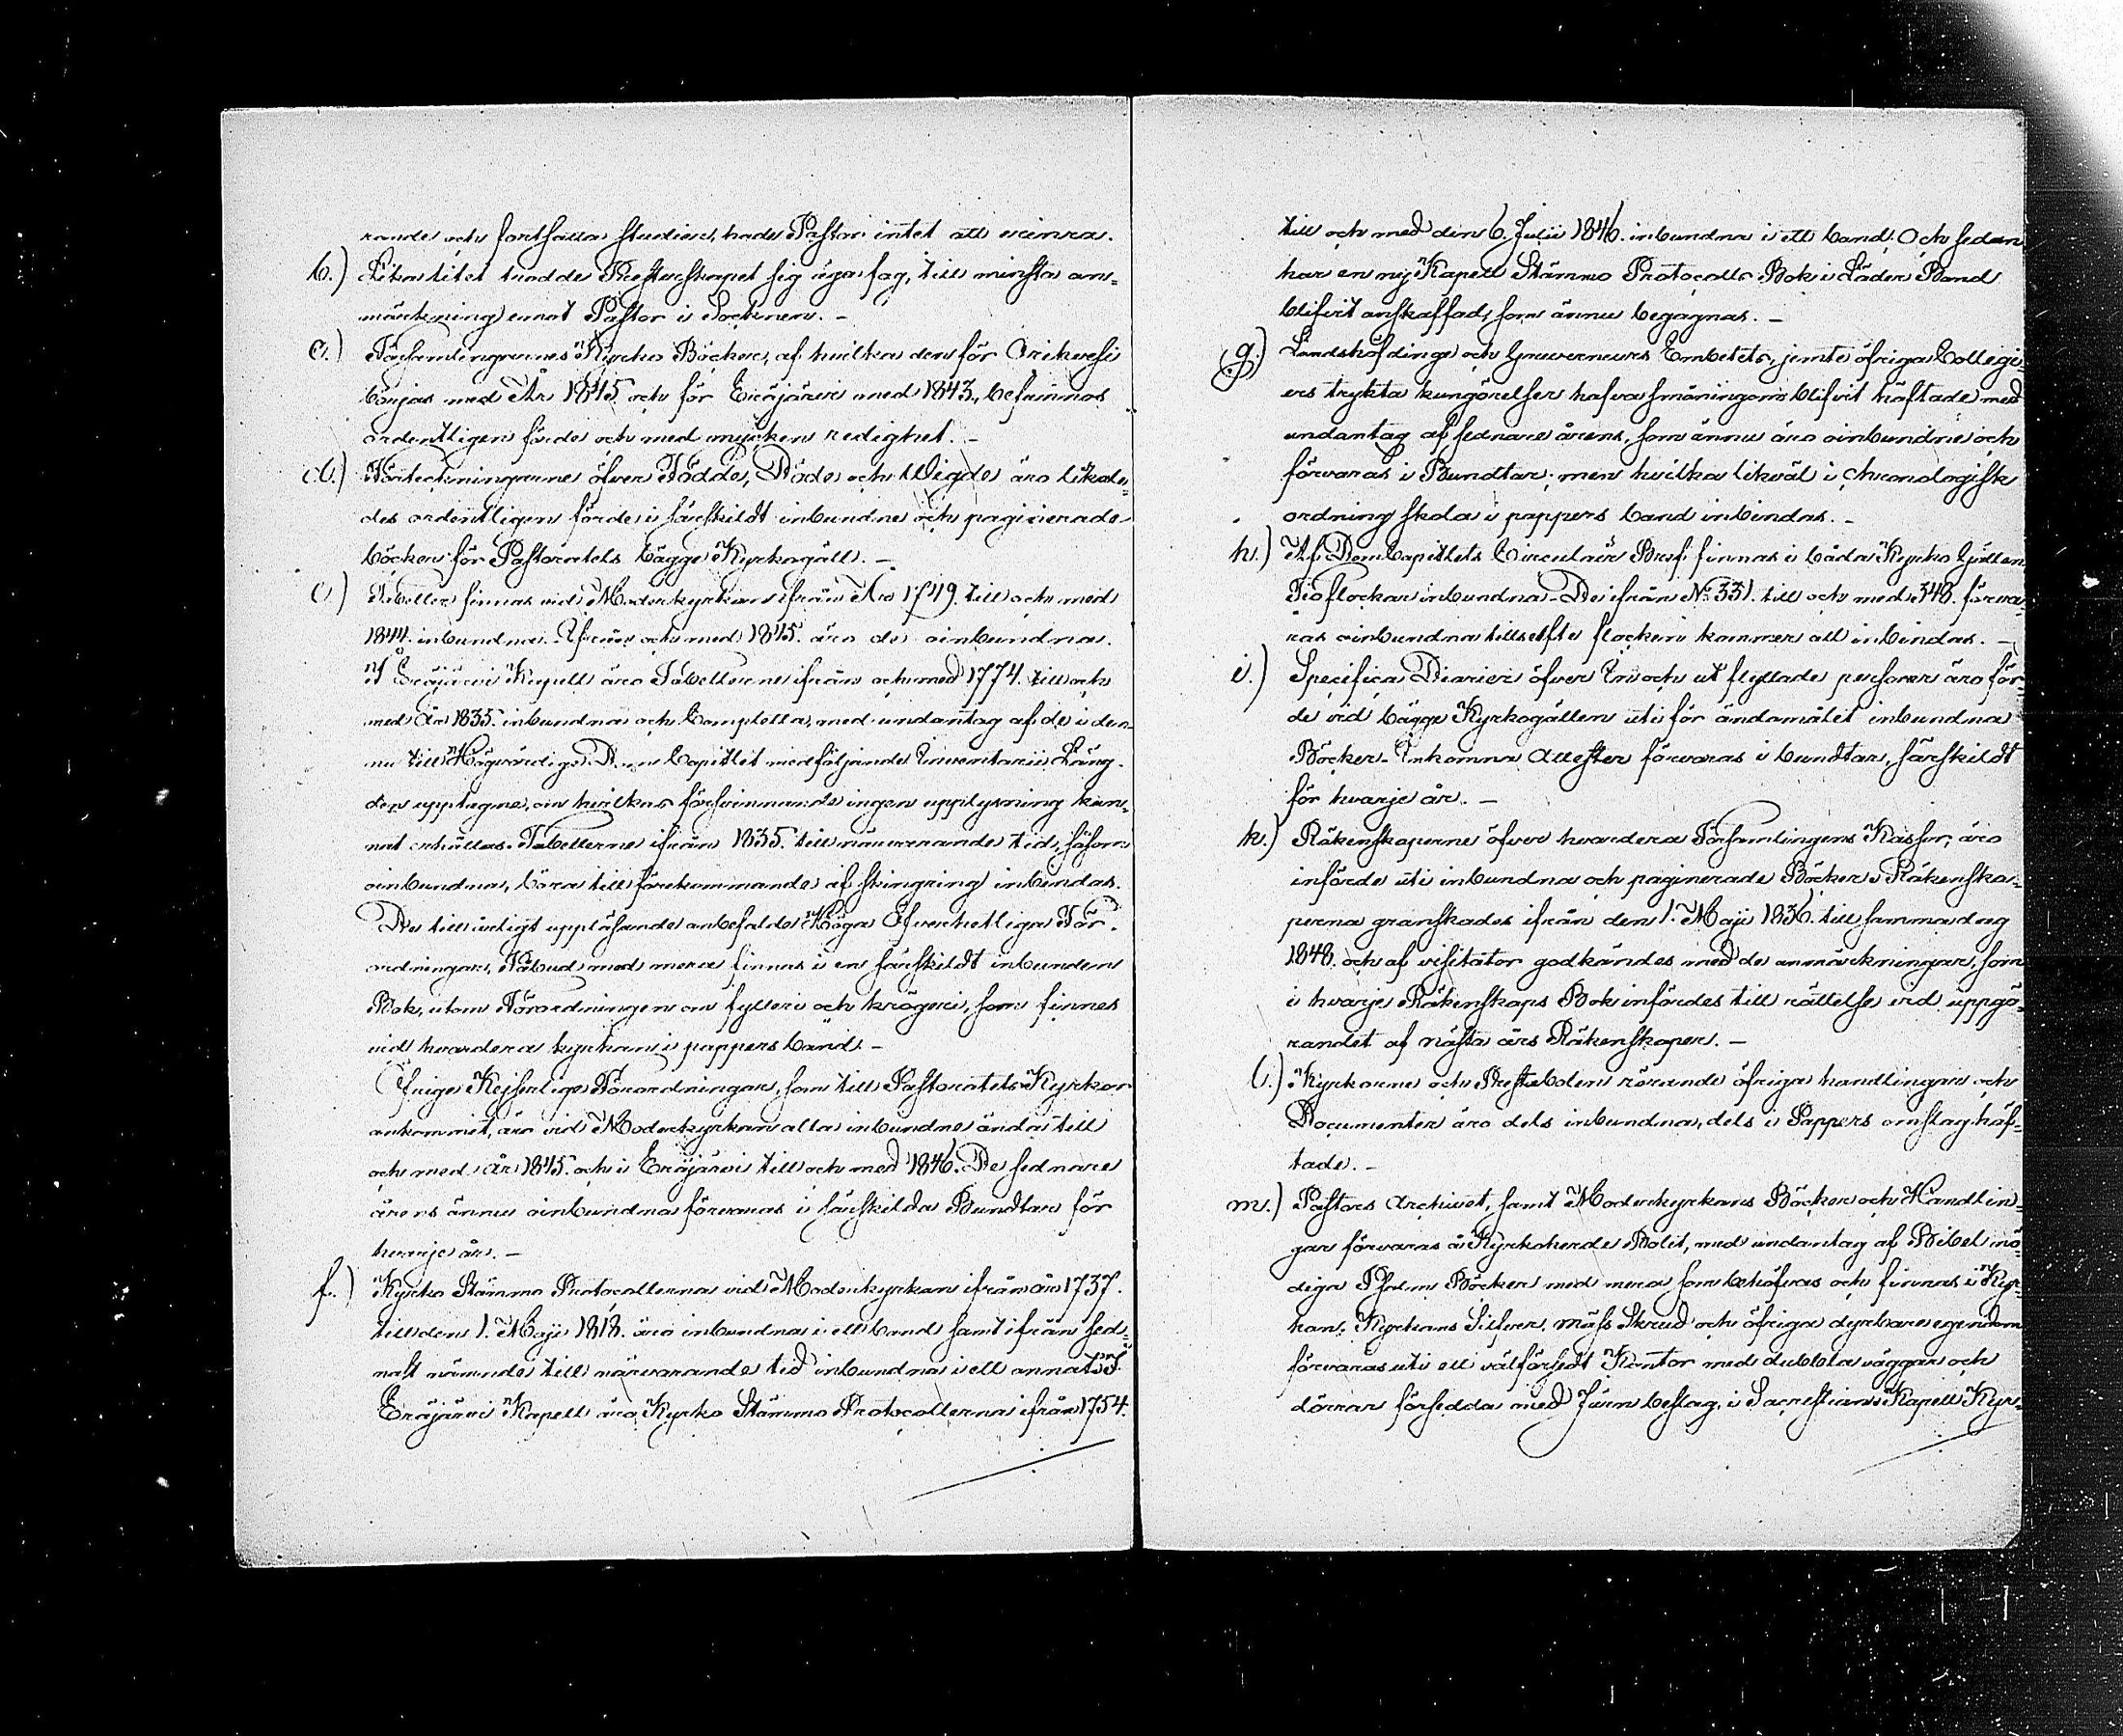 rande och fortsatta studier, hade Pastor intet att erinra.
b.) Lika litet trodde Presterskapet sig äga fog, till minsta an-
märkning emot Pastor i Socknen. -
c.) Församlingarnes Kyrko Böcker, af hvilka den för Orihvesi
börjas med År 1845 och för Eräjärvi med 1843, befunnos
ordentligen förde och med mycken redighet. -
d.) Förteckningarne öfver Födde, Döde och Wigde äro likale-
des ordentligen förde i särskildt inbundne och paginerade
böcker för Pastoratets bägge Kyrkogäll. -
e.) Tabeller finnas vid Moderkyrkan ifrån År 1749. till och med
1844. inbundna. Ifrån och med 1845. äro de oinbundna.
I Eräjärvi Kapell äro Tabellerne ifrån och med 1774. till och
med år 1835. inbundna och Completta, med undantag af de i den-
na till Högvördige Dom Capitlet medföljande Inventarii Läng-
den upptagne, om hvilkas försvinnande ingen upplysning kun-
nat erhållas. Tabellerne ifrån 1835. till närvarande tid, såsom
oinbundna, böra till förekommande af skingring inbindas.
De till årligt uppläsande anbefalde Höga Öfverhetliga För-
ordningar, Påbud med mera finnas i en särskildt inbunden
Bok, utom Förordningen om fylleri och krögeri, som finnes
vid hvardera kyrkan i pappers band. -
Öfrige Kejserliga Förordningar, som till Pastoratets Kyrkor
ankommit, äro vid Moderkyrkan alla inbundne ända till
och med år 1845. och i Eräjärvi till och med 1846. De sednare
årens ännu oinbundna förvaras i särskilda Bundtar för
hvarje år. -
f.) Kyrko Stämmo Protocollerna vid Moderkyrkan ifrån år 1737.
till den 1. Maji 1818. äro inbundna i ett band samt ifrån sed-
nast nämnde till närvarande tid inbundna i ett annat. I
Eräjärvi Kapell äro Kyrko Stämmo Protocollerna ifrån 1754.
till och med den 6. Julii 1846. inbundna i ett band. Och sedan
har en ny Kapell Stämmo Protocolls Bok i Läder Band
blifvit anskaffad, som ännu begagnas. -
g.) Landshöfdinge och Gouverneurs Embetets, jemte öfriga Collegi-
ers tryckta kungörelser hafva småningom blifvit häftade med
undantag af sednare årens, som ännu äro oinbundne och
förvaras i Bundtar; men hvilka likväl i chronologisk
ordning skola i pappers band inbindas. -
h.) Af DomCapitlets Circulair Bref finnas i båda Kyrko Gällen
Tio flockar inbundna. De ifrån No 331. till och med 348. förva-
ras oinbundna tills elfte flocken kommer att inbindas. -
i.) Specifica Diarier öfver In och ut flyttade personer äro för-
de vid bägge Kyrkogällen uti för ändamålet inbundna
Böcker. Inkomna Attester förvaras i bundtar, särskildt
för hvarje år. -
k.) Räkenskaperne öfver hvardera Församlingens Kassor, äro
införde uti inbundna och paginerade Böcker. Räkenska-
perna granskades ifrån den 1. Maji 1836. till samma dag
1848. och af visitator godkändes med de anmärkningar, som
i hvarje Räkenskaps Bok infördes till rättelse vid uppgö-
randet af nästa års Räkenskaper. -
l.) Kyrkorne och Prestaboden rörande öfriga handlingar och
Documenter äro dels inbundna, dels i Pappers omslag häf-
tade. -
m.) Pastors Archivet, samt Moderkyrkans Böcker och Handlin-
gar förvaras å Kyrkoherde Bolet, med undantag af Bibel, nö-
diga Psalm Böcker med mera som behöfvas och finnas i Kyr-
kan; Kyrkans Silfver, mäss Skrud och öfriga dyrbare egendom
förvaras uti ett välförsedt Kontor med dubbla väggar och
dörrar försedda med Järn beslag, i Sacrestian. Kapell Kyr-